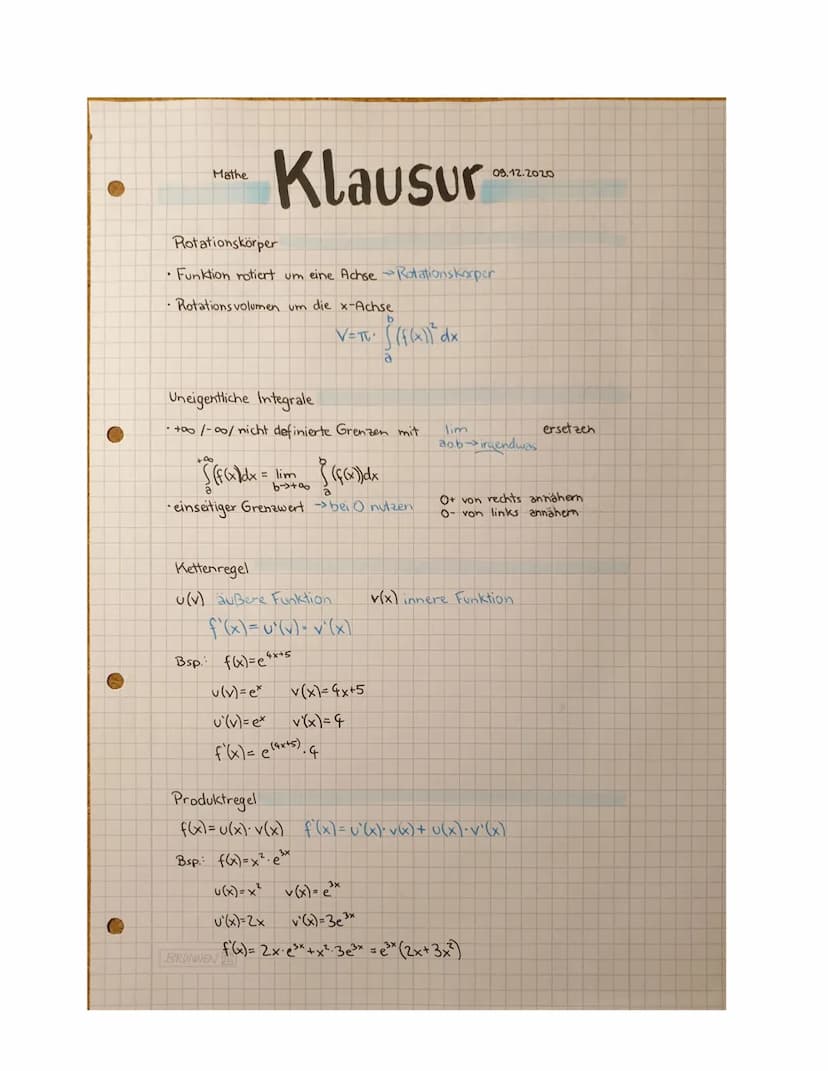 Mathe Klausur 09.12.2020
Rotationskörper
· Funktion rotiert um eine Achse → Rotationskörper
· Rotationsvolumen um die x-Achse
V=π· ∫ₐᵇ (f(x))² dx
Uneigentliche Integrale
· +∞ /-∞/ nicht definierte Grenzen mit lim aob→irgendwas ersetzen
∫ₐ⁺∞ (f(x)dx = lim b→+∞ ∫ₐᵇ (f(x))dx
· einseitiger Grenzwert → bei 0 nutzen 0+ von rechts annähern
0- von links annähern
Kettenregel
u(v) äußere Funktion v(x) innere Funktion
f'(x)=u'(v)·v'(x)
Bsp.: f(x)=e^4x+5
u(v)=eˣ v(x)=4x+5
u'(v)=eˣ v'(x)=4
f'(x)= e^(4x+5)·4
Produktregel
f(x)=u(x)·v(x) f'(x)=u'(x)·v(x)+u(x)·v'(x)
Bsp.: f(x)=x²·e^3x
u(x)=x² v(x)=e^3x
u'(x)=2x v'(x)=3e^3x
f'(x)= 2x·e^3x+x²·3e^3x =e^3x(2x+3x²)
BRUNNEN